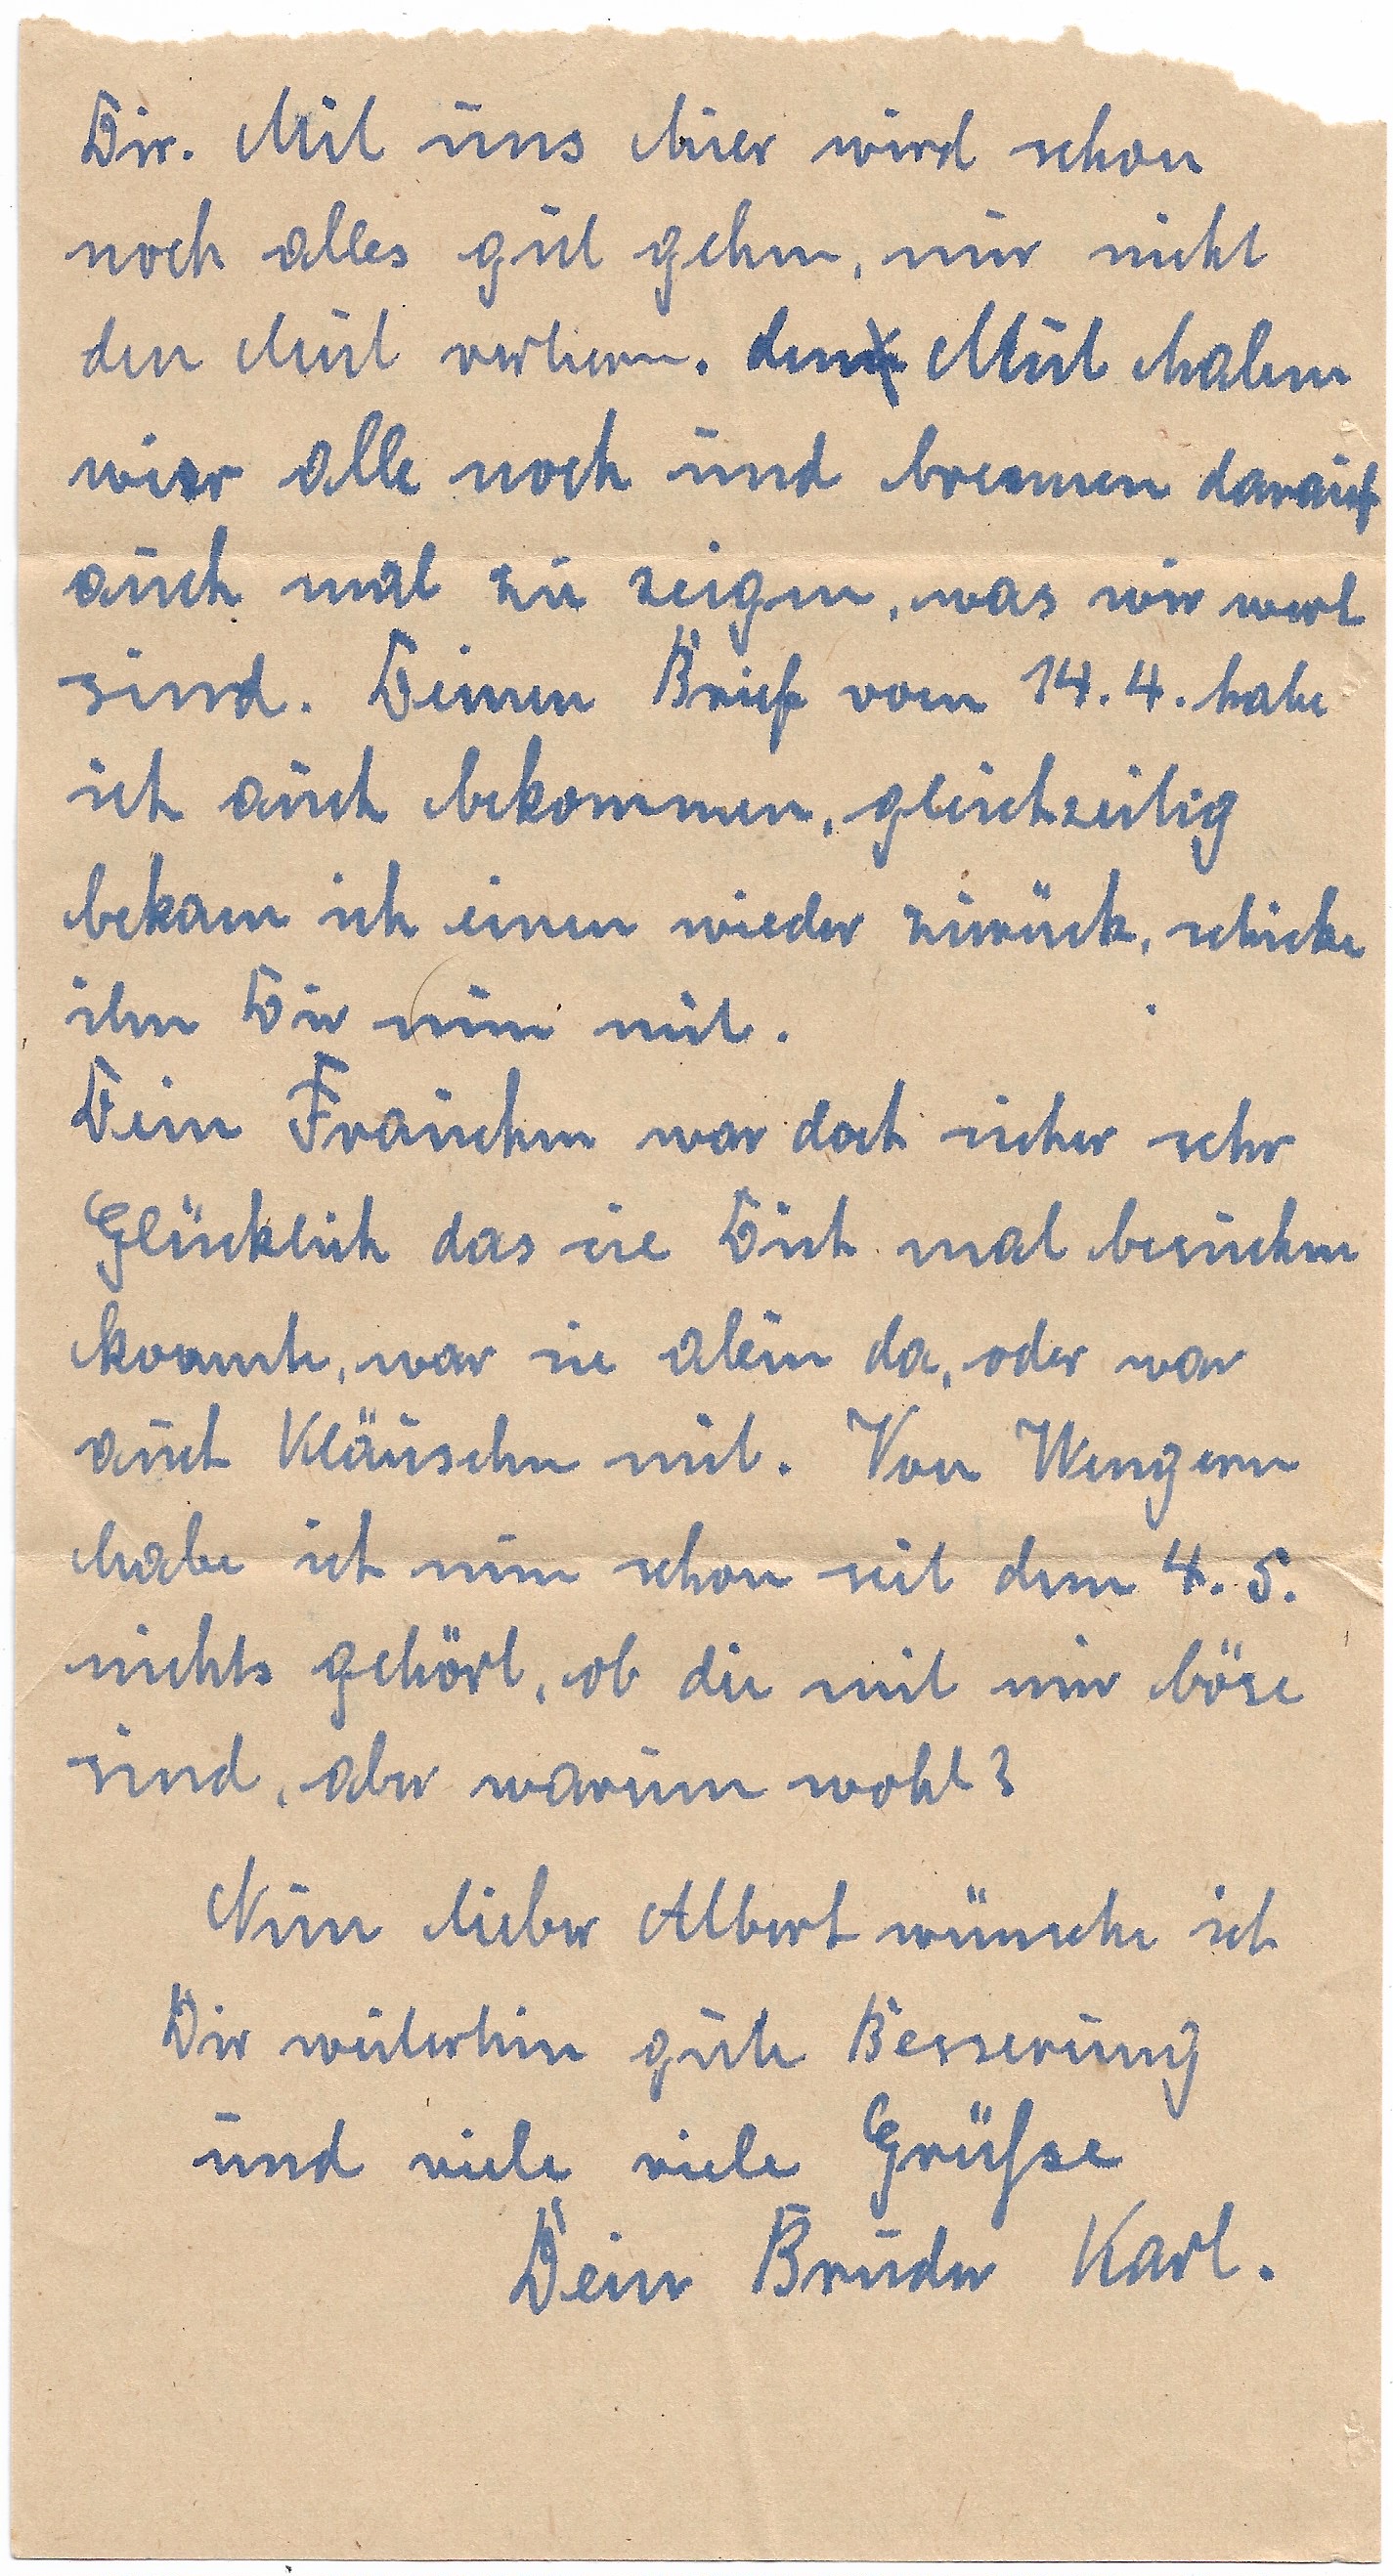 Dir. Mit uns hier wird schon
noch alles gut gehen, nur nicht
den Mut verlieren. den Mut haben
wier alle noch und brennen darauf
auch mal zu zeigen, was wir wert
sind. Deinen Brief vom 14.4. habe
ich auch bekommen, gleichzeitig
bekam ich einen wieder zurück, schicke
ihn Dir nun mit.
Dein Frauchen war doch sicher sehr
Glücklich das sie Dich mal besuchen
konnte, war sie alein da, oder war
auch Kläuschen mit. Von Wengern
habe ich nun schon seit dem 4.5.
nichts gehört, ob die mit mir böse
sind, aber warum wohl?
Nun lieber Albert wünsche ich
Dir weiterhin gute Besserung
und viele viele Grüße
Dein Bruder Karl.